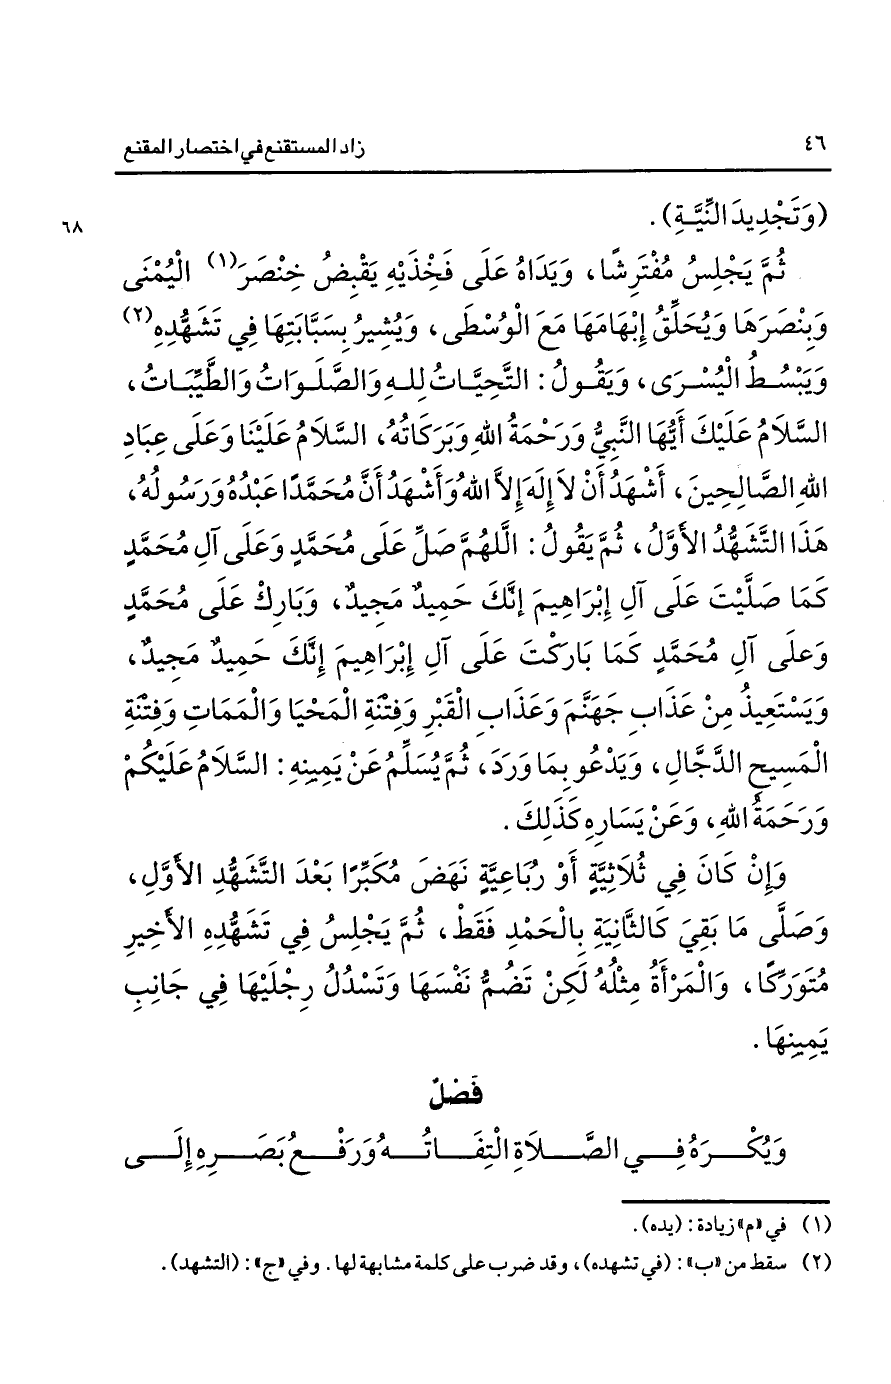 ٤٦ زاد المستقنع في اختصار المقنع
(وَتَجْدِيدَ النِّيَّةِ). ٦٨
ثُمَّ يَجْلِسُ مُفْتَرِشًا، وَيَدَاهُ عَلَى فَخْذَيْهِ يَقْبِضُ خِنْصَرَ(١) الْيُمْنَى
وَبِنْصَرَهَا وَيُحَلِّقُ إِبْهَامَهَا مَعَ الْوُسْطَى، وَيُشِيرُ بِسَبَّابَتِهَا فِي تَشَهُّدِهِ(٢)
وَيَبْسُـطُ الْيُسْـرَى، وَيَقُـولُ: التَّحِيَّـاتُ لِلـهِ وَالصَّلَـوَاتُ وَالطَّيِّبَـاتُ،
السَّلَامُ عَلَيْكَ أَيُّهَا النَّبِيُّ وَرَحْمَةُ اللهِ وَبَرَكَاتُهُ، السَّلَامُ عَلَيْنَا وَعَلَى عِبَادِ
اللهِ الصَّالِحِينَ، أَشْهَدُ أَنْ لاَ إِلَهَ إِلاَّ اللهُ وَأَشْهَدُ أَنَّ مُحَمَّدًا عَبْدُهُ وَرَسُولُهُ،
هَذَا التَّشَهُّدُ الأَوَّلُ، ثُمَّ يَقُولُ: الَّلهُمَّ صَلِّ عَلَى مُحَمَّدٍ وَعَلَى آلِ مُحَمَّدٍ
كَمَا صَلَّيْتَ عَلَى آلِ إِبْرَاهِيمَ إِنَّكَ حَمِيدٌ مَجِيدٌ، وَبَارِكْ عَلَى مُحَمَّدٍ
وَعلَى آلِ مُحَمَّدٍ كَمَا بَارَكْتَ عَلَى آلِ إِبْرَاهِيمَ إِنَّكَ حَمِيدٌ مَجِيدٌ،
وَيَسْتَعِيذُ مِنْ عَذَابِ جَهَنَّمَ وَعَذَابِ الْقَبْرِ وَفِتْنَةِ الْمَحْيَا وَالْمَمَاتِ وَفِتْنَةِ
الْمَسِيحِ الدَّجَّالِ، وَيَدْعُو بِمَا وَرَدَ، ثُمَّ يُسَلِّمُ عَنْ يَمِينِهِ: السَّلَامُ عَلَيْكُمْ
وَرَحَمَةُ اللهِ، وَعَنْ يَسَارِهِ كَذَلِكَ.
وَإِنْ كَانَ فِي ثُلَاثِيَّةٍ أَوْ رُبَاعِيَّةٍ نَهَضَ مُكَبِّرًا بَعْدَ التَّشَهُّدِ الأَوَّلِ،
وَصَلَّى مَا بَقِيَ كَالثَّانِيَةِ بِالْحَمْدِ فَقَطْ، ثُمَّ يَجْلِسُ فِي تَشَهُّدِهِ الأَخيرِ
مُتَوَرِّكًا، وَالْمَرْأَةُ مِثْلُهُ لَكِنْ تَضُمُّ نَفْسَهَا وَتَسْدُلُ رِجْلَيْهَا فِي جَانِبِ
يَمِينِهَا.
فَصْلٌ
وَيُكْـــرَهُ فِـــي الصَّـــلاَةِ الْتِفَـــاتُـــهُ وَرَفْـــعُ بَصَـــرِهِ إِلَـــى
(١) في «م» زيادة: (يده).
(٢) سقط من «ب»: (في تشهده)، وقد ضرب على كلمة مشابهة لها. وفي «ج»: (التشهد).